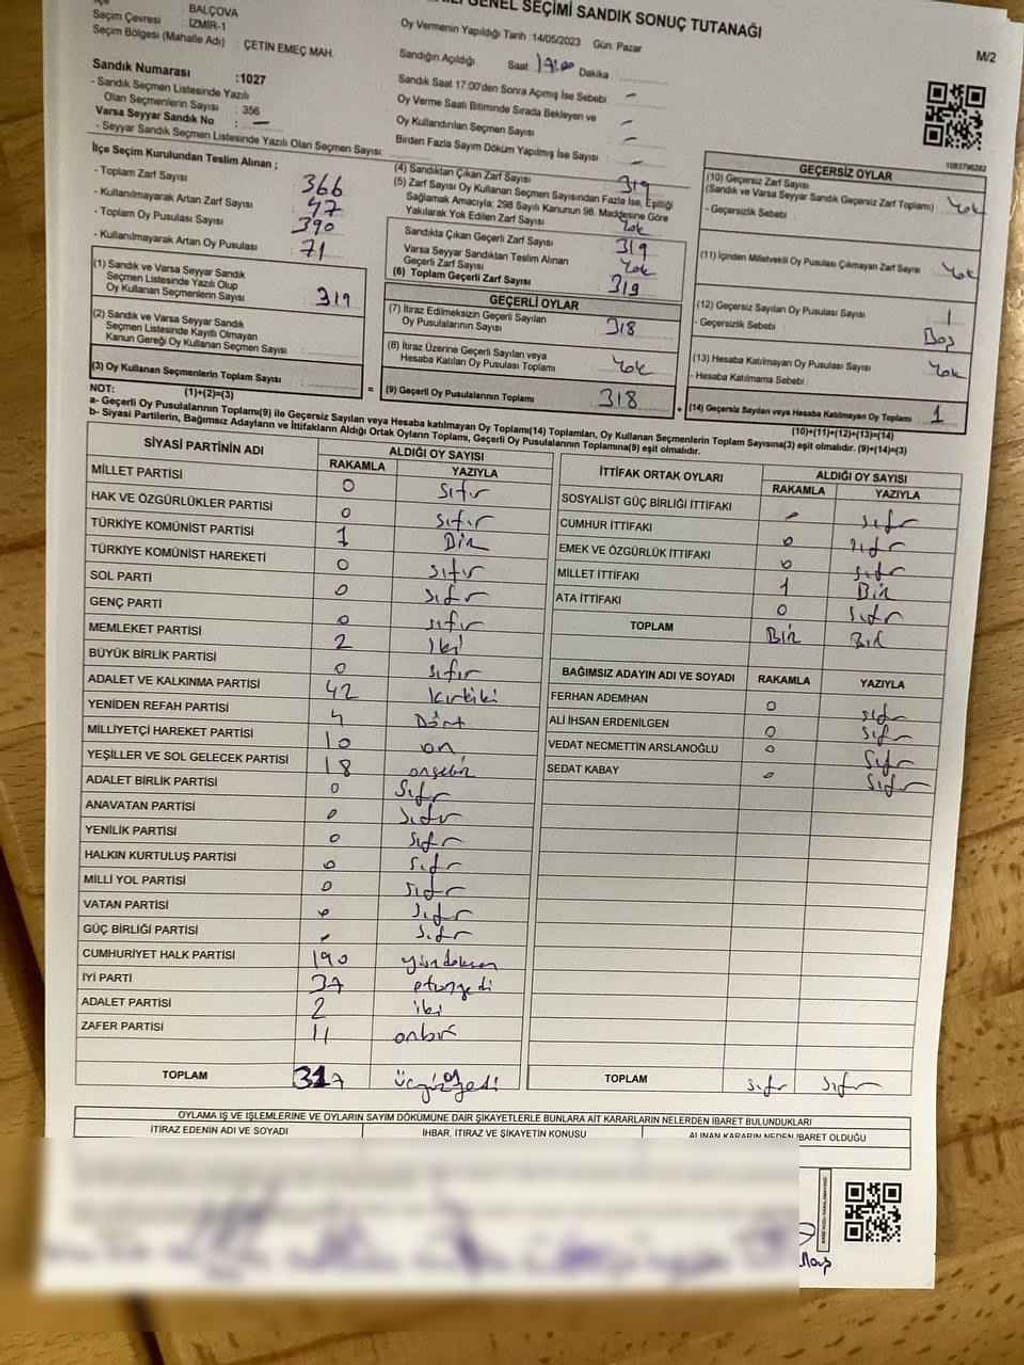 GENEL SEÇİMİ SANDIK SONUÇ TUTANAĞI
M/2
BALÇOVA
Seçim Çevresi : İZMİR-1
Seçim Bölgesi (Mahalle Adı) : ÇETİN EMEÇ MAH.
Sandık Numarası :1027
- Sandık Seçmen Listesinde Yazılı
Olan Seçmenlerin Sayısı : 356
Varsa Seyyar Sandık No : —
- Seyyar Sandık Seçmen Listesinde Yazılı Olan Seçmen Sayısı:
Oy Vermenin Yapıldığı Tarih :14/05/2023 Gün: Pazar
Sandığın Açıldığı Saat 17:00 Dakika
Sandık Saat 17:00'den Sonra Açımış İse Sebebi —
Oy Verme Saati Bitiminde Sırada Bekleyen ve
Oy Kullandırılan Seçmen Sayısı —
Birden Fazla Sayım Döküm Yapılmış İse Sayısı —
İlçe Seçim Kurulundan Teslim Alınan ;
- Toplam Zarf Sayısı 366
- Kullanılmayarak Artan Zarf Sayısı 47
- Toplam Oy Pusulası Sayısı 390
- Kullanılmayarak Artan Oy Pusulası 71
(1) Sandık ve Varsa Seyyar Sandık
Seçmen Listesinde Yazılı Olup
Oy Kullanan Seçmenlerin Sayısı 319
(2) Sandık ve Varsa Seyyar Sandık
Seçmen Listesinde Kayıtlı Olmayan
Kanun Gereği Oy Kullanan Seçmen Sayısı
(3) Oy Kullanan Seçmenlerin Toplam Sayısı
(1)+(2)=(3)
(4) Sandıktan Çıkan Zarf Sayısı 319
(5) Zarf Sayısı Oy Kullanan Seçmen Sayısından Fazla İse, Eşitliği
Sağlamak Amacıyla; 298 Sayılı Kanunun 98. Maddesine Göre
Yakılarak Yok Edilen Zarf Sayısı Yok
Sandıkta Çıkan Geçerli Zarf Sayısı 319
Varsa Seyyar Sandıktan Teslim Alınan
Geçerli Zarf Sayısı Yok
(6) Toplam Geçerli Zarf Sayısı 319
GEÇERLİ OYLAR
(7) İtiraz Edilmeksizin Geçerli Sayılan
Oy Pusulalarının Sayısı 318
(8) İtiraz Üzerine Geçerli Sayılan veya
Hesaba Katılan Oy Pusulası Toplamı Yok
= (9) Geçerli Oy Pusulalarının Toplamı 318
GEÇERSİZ OYLAR
(10) Geçersiz Zarf Sayısı
(Sandık ve Varsa Seyyar Sandık Geçersiz Zarf Toplamı) Yok
- Geçersizlik Sebebi
(11) İçinden Milletvekili Oy Pusulası Çıkmayan Zarf Sayısı Yok
(12) Geçersiz Sayılan Oy Pusulası Sayısı 1
- Geçersizlik Sebebi Boş
(13) Hesaba Katılmayan Oy Pusulası Sayısı Yok
- Hesaba Katılmama Sebebi
+ (14) Geçersiz Sayılan veya Hesaba Katılmayan Oy Toplamı 1
(10)+(11)+(12)+(13)=(14)
NOT:
a- Geçerli Oy Pusulalarının Toplamı(9) ile Geçersiz Sayılan veya Hesaba katılmayan Oy Toplamı(14) Toplamları, Oy Kullanan Seçmenlerin Toplam Sayısına(3) eşit olmalıdır. (9)+(14)=(3)
b- Siyasi Partilerin, Bağımsız Adayların ve İttifakların Aldığı Ortak Oyların Toplamı, Geçerli Oy Pusulalarının Toplamına(9) eşit olmalıdır.
SİYASİ PARTİNİN ADI ALDIĞI OY SAYISI
RAKAMLA YAZIYLA
MİLLET PARTİSİ 0 Sıfır
HAK VE ÖZGÜRLÜKLER PARTİSİ 0 Sıfır
TÜRKİYE KOMÜNİST PARTİSİ 1 Bir
TÜRKİYE KOMÜNİST HAREKETİ 0 Sıfır
SOL PARTİ 0 Sıfır
GENÇ PARTİ 0 Sıfır
MEMLEKET PARTİSİ 2 İki
BÜYÜK BİRLİK PARTİSİ 0 Sıfır
ADALET VE KALKINMA PARTİSİ 42 Kırkiki
YENİDEN REFAH PARTİSİ 4 Dört
MİLLİYETÇİ HAREKET PARTİSİ 10 on
YEŞİLLER VE SOL GELECEK PARTİSİ 18 onsekiz
ADALET BİRLİK PARTİSİ 0 Sıfır
ANAVATAN PARTİSİ 0 Sıfır
YENİLİK PARTİSİ 0 Sıfır
HALKIN KURTULUŞ PARTİSİ 0 Sıfır
MİLLİ YOL PARTİSİ 0 Sıfır
VATAN PARTİSİ 0 Sıfır
GÜÇ BİRLİĞİ PARTİSİ - Sıfır
CUMHURİYET HALK PARTİSİ 190 yüzdoksan
İYİ PARTİ 37 otuzyedi
ADALET PARTİSİ 2 iki
ZAFER PARTİSİ 11 onbir
TOPLAM 317 üçyüzonyedi
İTTİFAK ORTAK OYLARI ALDIĞI OY SAYISI
RAKAMLA YAZIYLA
SOSYALİST GÜÇ BİRLİĞİ İTTİFAKI - Sıfır
CUMHUR İTTİFAKI 0 Sıfır
EMEK VE ÖZGÜRLÜK İTTİFAKI 0 Sıfır
MİLLET İTTİFAKI 1 Bir
ATA İTTİFAKI 0 Sıfır
TOPLAM Bir Bir
BAĞIMSIZ ADAYIN ADI VE SOYADI RAKAMLA YAZIYLA
FERHAN ADEMHAN 0 Sıfır
ALİ İHSAN ERDENİLGEN 0 Sıfır
VEDAT NECMETTİN ARSLANOĞLU 0 Sıfır
SEDAT KABAY 0 Sıfır
TOPLAM Sıfır Sıfır
OYLAMA İŞ VE İŞLEMLERİNE VE OYLARIN SAYIM DÖKÜMÜNE DAİR ŞİKAYETLERLE BUNLARA AİT KARARLARIN NELERDEN İBARET BULUNDUKLARI
İTİRAZ EDENİN ADI VE SOYADI İHBAR, İTİRAZ VE ŞİKAYETİN KONUSU ALINAN KARARIN NEDEN İBARET OLDUĞU